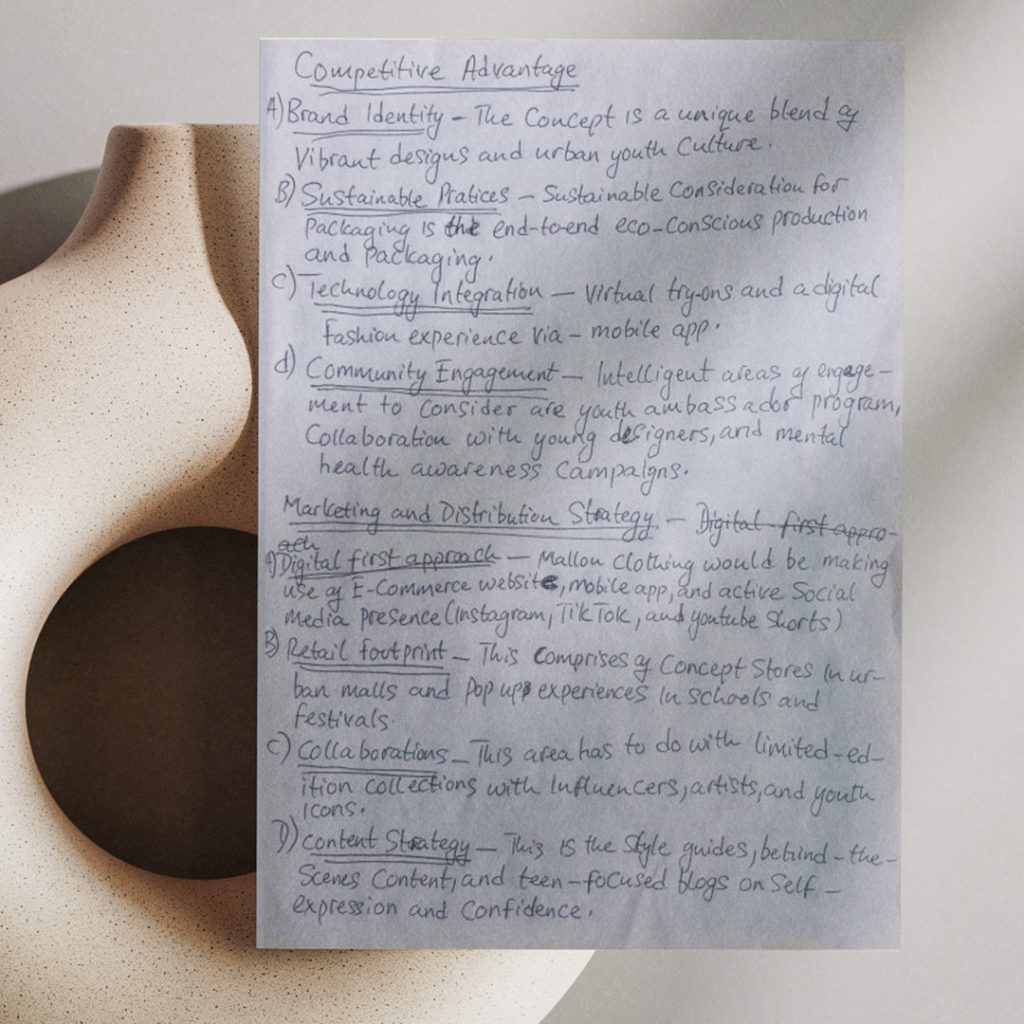 Competitive Advantage
A) Brand Identity – The Concept is a unique blend of
Vibrant designs and urban youth Culture.
B) Sustainable Pratices – Sustainable Consideration for
Packaging is the end-to-end eco-conscious production
and packaging.
C) Technology Integration – Virtual try-ons and a digital
fashion experience via – mobile app.
d) Community Engagement – Intelligent areas of engage-
ment to consider are youth ambassador program,
Collaboration with young designers, and mental
health awareness campaigns.
Marketing and Distribution Strategy – Digital first appro-
ach
A) Digital first approach – Mallon Clothing would be making
use of E-Commerce website, mobile app, and active Social
Media presence (Instagram, TikTok, and youtube Shorts)
B) Retail footprint – This Comprises of Concept Stores in ur-
ban malls and Pop ups experiences in schools and
festivals.
C) Collaborations – This area has to do with limited-ed-
ition collections with Influencers, artists, and youth
Icons.
D) Content Strategy – This is the Style guides, behind-the-
Scenes Content, and teen-focused blogs on Self-
expression and Confidence.